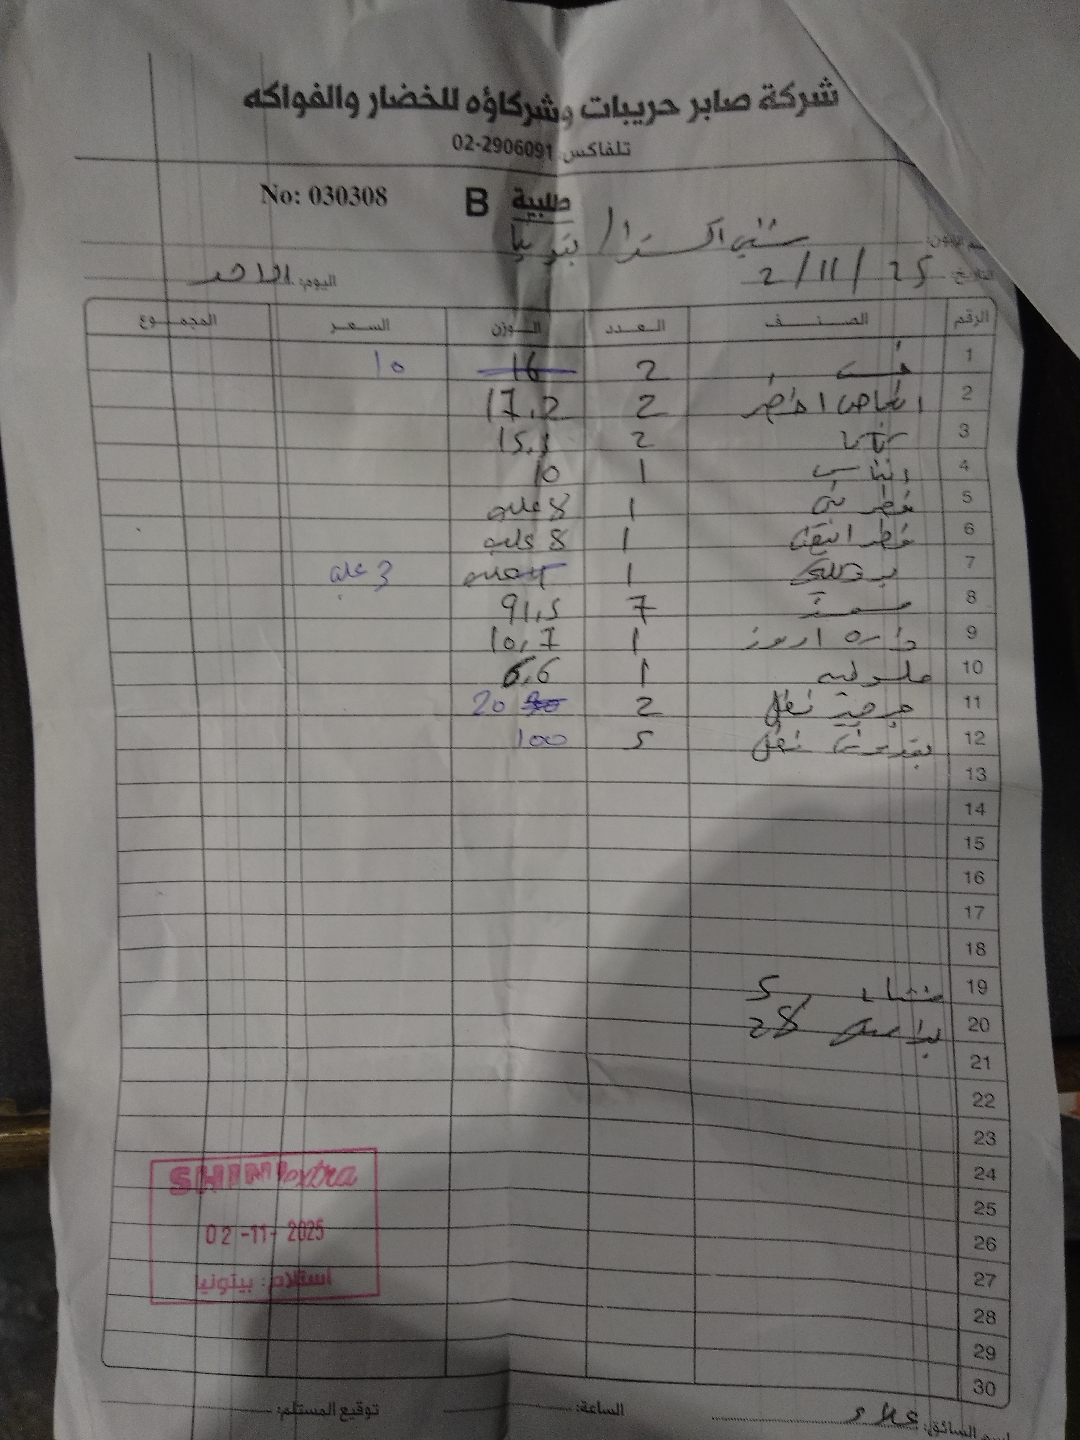 شركة صابر حريبات وشركاؤه للخضار والفواكه
تلفاكس: 02-2906091
No: 030308 B طلبية
شني اكسترا / بتونيا
التاريخ: 2/11/25 اليوم: الاحد
الرقم الصنف العدد الوزن السعر المجموع
1 خس 2 16 10
2 اجاص اخضر 2 17.2
3 2 15.1
4 اناناس 1 10
5 فطر 1 8 علب
6 فطر 1 8 علب
7 1 4 علب 3 علب
8 7 91.5
9 1 10.7
10 ملوخيه 1 6.6
11 جرجير نعنع 2 20
12 بقدونس 5 100
13
14
15
16
17
18
19 5
20 28
21
22
23
24
25
26
27
28
29
30
SHINI extra
02-11-2025
استلام: بيتونيا
اسم السائق: علاء الساعة: توقيع المستلم: